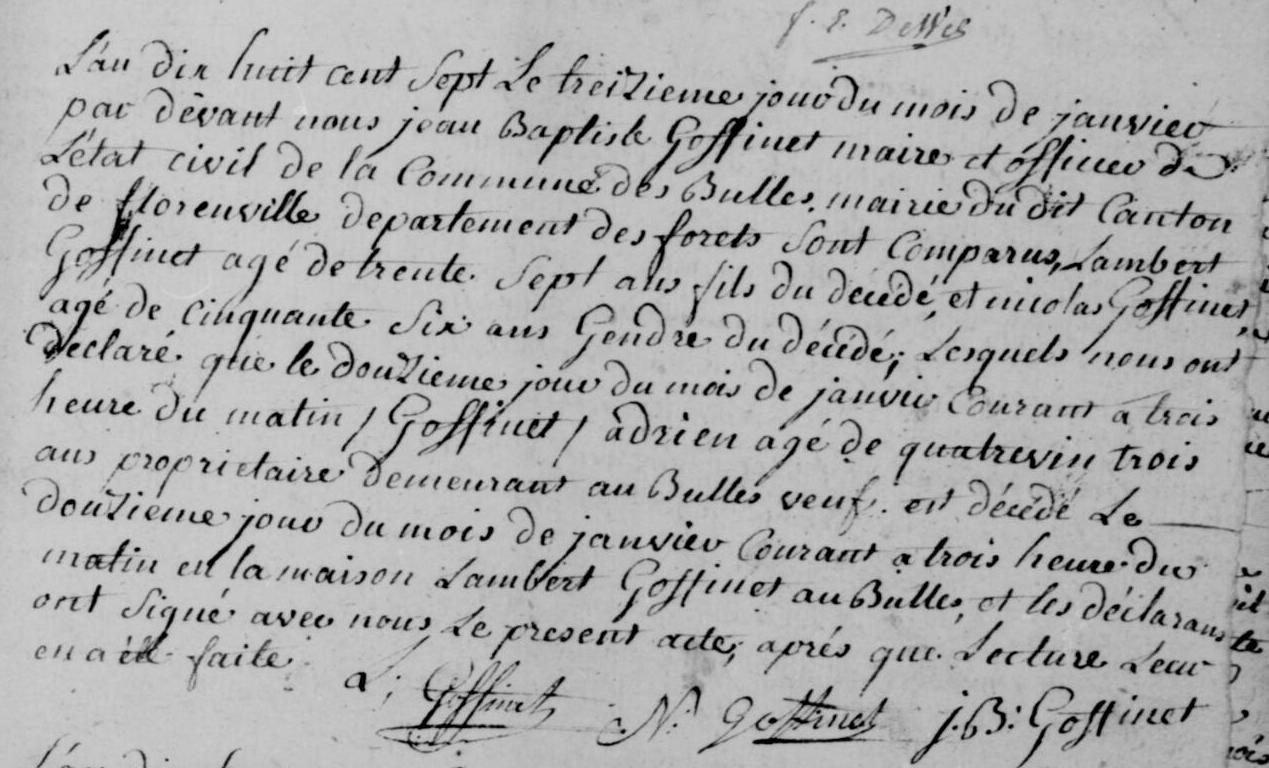 f. E. DeWes
L'an dix huit cent sept Le treiZieme jour du mois de janvier
par dévant nous jean Baptiste Goffinet maire et officier de
L'état civil de la Commune des Bulles, mairie du dit Canton
de florenville departement des forets sont Comparus, Lambert
Goffinet agé de trente Sept ans fils du décédé, et nicolas Goffinet,
agé de cinquante Six ans Gendre du décédé; Lesquels nous ont
declaré que le douZieme jour du mois de janvier Courant a trois
heure du matin / Goffinet / adrien agé de quatrevin trois
ans proprietaire demeurant au Bulles veuf. est décédé Le
douZieme jour du mois de janvier Courant a trois heure du
matin en la maison Lambert Goffinet au Bulles, et les déclarans
ont Signé avec nous Le present acte; aprés que Lecture Leur
en a été faite
L; Goffinet N. Goffinet j. B: Goffinet